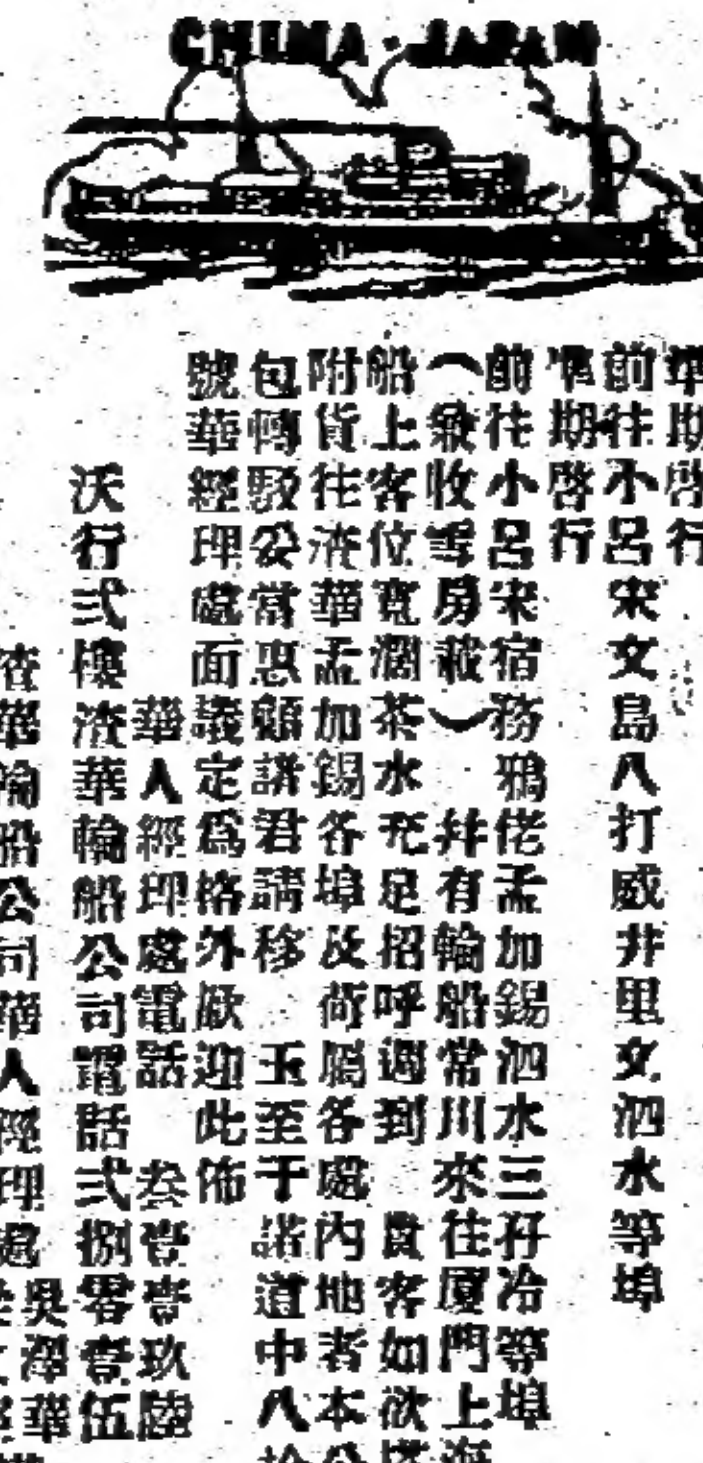 CHINA・JAPAN
準期啓行
前往小呂宋文島八打威井里文泗水等埠
準期啓行
前往小呂宋宿務鴉佬孟加錫泗水三孖冷等埠
（兼收雪房載）并有輪船常川來往厦門上海
船上客位寬濶茶水充足招呼週到 貴客如欲搭
附貨往渣華孟加錫各埠及荷屬各處內地者本公
包轉駁公當惠顧諸君請移 玉至干諾道中八拾
號華經理處面議定爲格外歡迎此佈
華人經理處電話 叁壹壹玖陸
沃行弍樓渣華輪船公司電話弍捌零壹伍
渣華輪船公司華人經理處
吳澤華